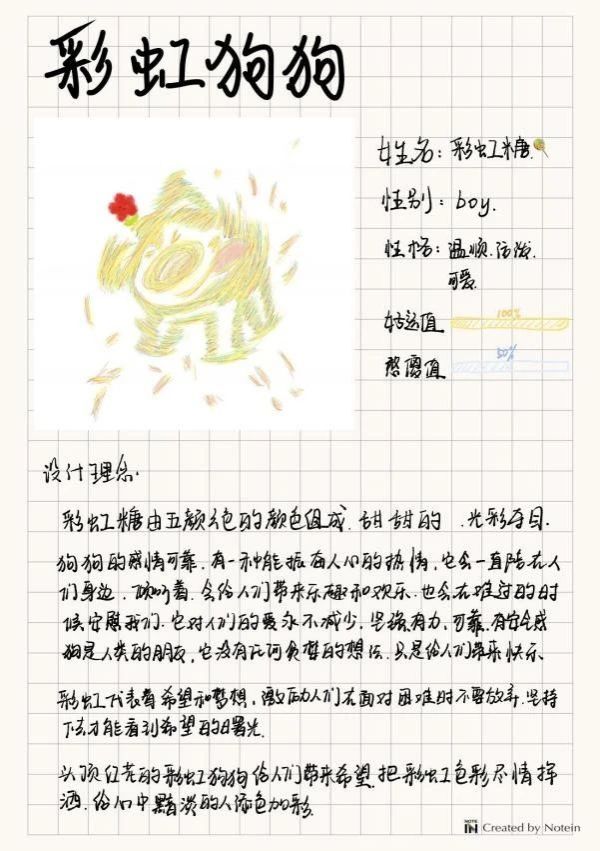 彩虹狗狗
姓名：彩虹糖
性别：boy.
性格：温顺.活泼.
可爱.
好运值 100%
憨傻值 50%
设计理念.
彩虹糖由五颜六色的颜色组成.甜甜的.光彩夺目.
狗狗的感情可靠.有一种能振奋人心的热情，它会一直陪在人
们身边.倾听着.会给人们带来乐趣和欢乐.也会在难过的时
候安慰我们.它对人们的爱永不减少.坚强有力.可靠.有安全感
狗是人类的朋友，它没有任何贪婪的想法.只是给人们带来快乐
彩虹代表着希望和梦想，激励人们在面对困难时不要放弃.坚持
下去才能看到希望的曙光.
头顶红花的彩虹狗狗给人们带来希望.把彩虹色彩尽情挥
洒.给心中黯淡的人添色加彩.
NOTE IN Created by Notein